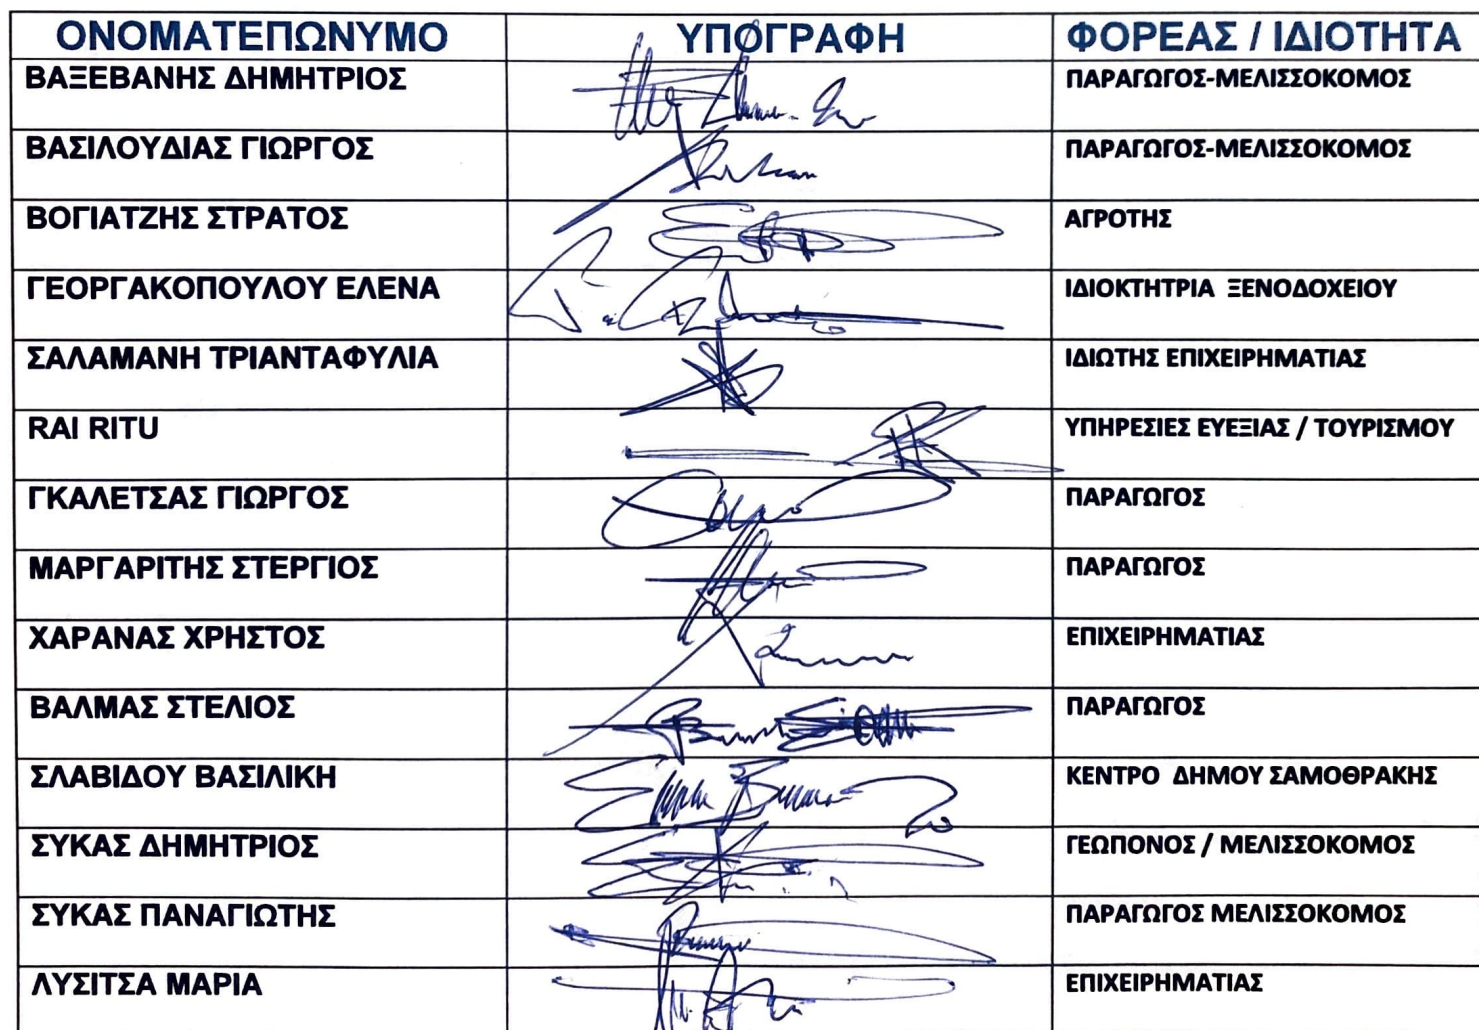 ΟΝΟΜΑΤΕΠΩΝΥΜΟ ΥΠΟΓΡΑΦΗ ΦΟΡΕΑΣ / ΙΔΙΟΤΗΤΑ
ΒΑΞΕΒΑΝΗΣ ΔΗΜΗΤΡΙΟΣ ΠΑΡΑΓΩΓΟΣ-ΜΕΛΙΣΣΟΚΟΜΟΣ
ΒΑΣΙΛΟΥΔΙΑΣ ΓΙΩΡΓΟΣ ΠΑΡΑΓΩΓΟΣ-ΜΕΛΙΣΣΟΚΟΜΟΣ
ΒΟΓΙΑΤΖΗΣ ΣΤΡΑΤΟΣ ΑΓΡΟΤΗΣ
ΓΕΟΡΓΑΚΟΠΟΥΛΟΥ ΕΛΕΝΑ ΙΔΙΟΚΤΗΤΡΙΑ ΞΕΝΟΔΟΧΕΙΟΥ
ΣΑΛΑΜΑΝΗ ΤΡΙΑΝΤΑΦΥΛΙΑ ΙΔΙΩΤΗΣ ΕΠΙΧΕΙΡΗΜΑΤΙΑΣ
RAI RITU ΥΠΗΡΕΣΙΕΣ ΕΥΕΞΙΑΣ / ΤΟΥΡΙΣΜΟΥ
ΓΚΑΛΕΤΣΑΣ ΓΙΩΡΓΟΣ ΠΑΡΑΓΩΓΟΣ
ΜΑΡΓΑΡΙΤΗΣ ΣΤΕΡΓΙΟΣ ΠΑΡΑΓΩΓΟΣ
ΧΑΡΑΝΑΣ ΧΡΗΣΤΟΣ ΕΠΙΧΕΙΡΗΜΑΤΙΑΣ
ΒΑΛΜΑΣ ΣΤΕΛΙΟΣ ΠΑΡΑΓΩΓΟΣ
ΣΛΑΒΙΔΟΥ ΒΑΣΙΛΙΚΗ ΚΕΝΤΡΟ ΔΗΜΟΥ ΣΑΜΟΘΡΑΚΗΣ
ΣΥΚΑΣ ΔΗΜΗΤΡΙΟΣ ΓΕΩΠΟΝΟΣ / ΜΕΛΙΣΣΟΚΟΜΟΣ
ΣΥΚΑΣ ΠΑΝΑΓΙΩΤΗΣ ΠΑΡΑΓΩΓΟΣ ΜΕΛΙΣΣΟΚΟΜΟΣ
ΛΥΣΙΤΣΑ ΜΑΡΙΑ ΕΠΙΧΕΙΡΗΜΑΤΙΑΣ